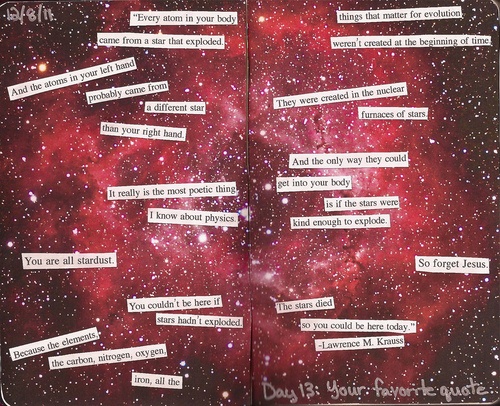 12/8/11
"Every atom in your body
came from a star that exploded.
And the atoms in your left hand
probably came from
a different star
than your right hand.
It really is the most poetic thing
I know about physics.
You are all stardust.
You couldn't be here if
stars hadn't exploded.
Because the elements,
the carbon, nitrogen, oxygen,
iron, all the
things that matter for evolution
weren't created at the beginning of time.
They were created in the nuclear
furnaces of stars.
And the only way they could
get into your body
is if the stars were
kind enough to explode.
So forget Jesus.
The stars died
so you could be here today."
-Lawrence M. Krauss
Day 13: Your favorite quote.